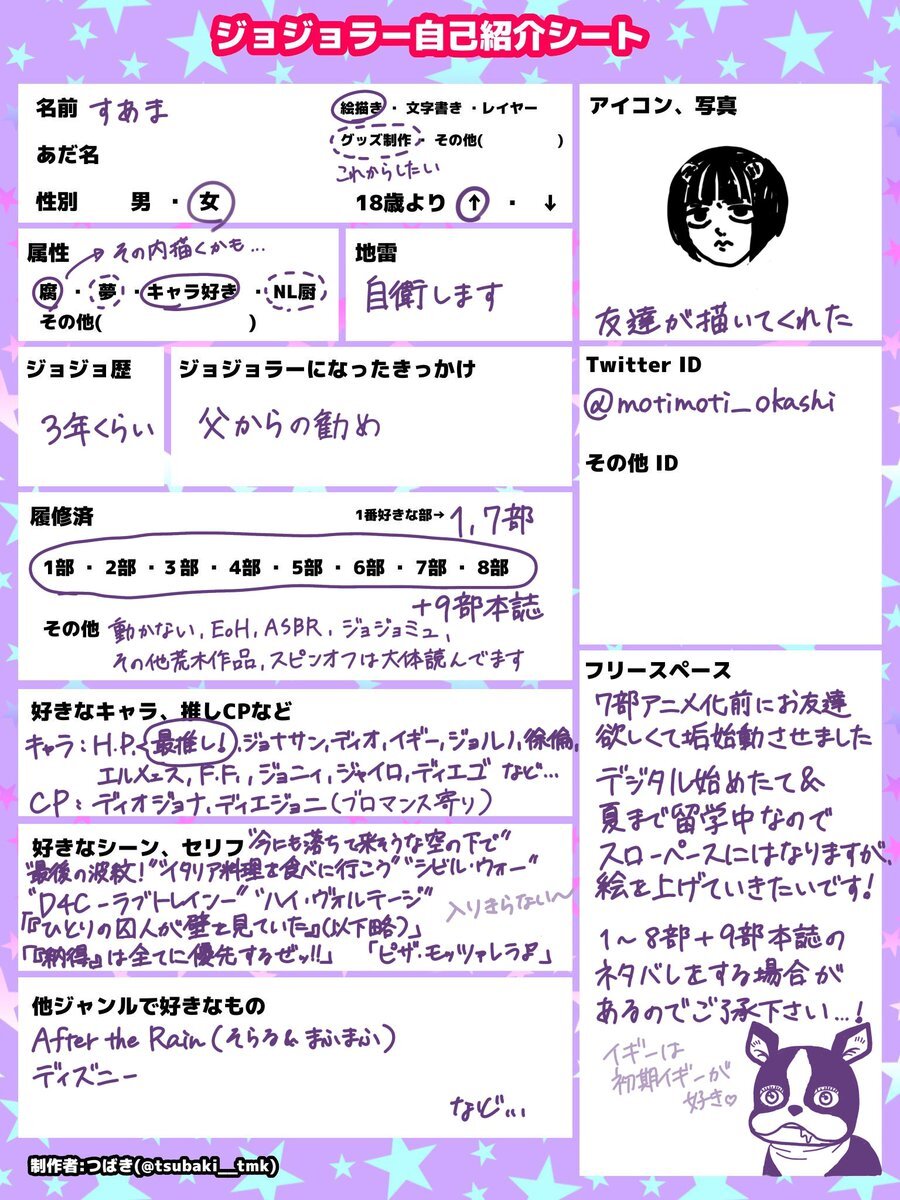 ジョジョラー自己紹介シート
名前 すあま
絵描き・文字書き・レイヤー
グッズ制作・その他( )
これからしたい
あだ名
性別 男・女
18歳より ↑・↓
アイコン、写真
友達が描いてくれた
属性 その内描くかも…
腐・夢・キャラ好き・NL厨
その他( )
地雷
自衛します
ジョジョ歴
3年くらい
ジョジョラーになったきっかけ
父からの勧め
Twitter ID
@motimoti_okashi
その他 ID
履修済
1番好きな部→1,7部
1部・2部・3部・4部・5部・6部・7部・8部
+9部本誌
その他 動かない, EoH, ASBR, ジョジョミュ,
その他荒木作品, スピンオフは大体読んでます
好きなキャラ、推しCPなど
キャラ:H.P.<最推し!, ジョナサン, ディオ, イギー, ジョルノ, 徐倫,
エルメェス, F.F., ジョニィ, ジャイロ, ディエゴ など…
CP:ディオジョナ, ディエジョニ(ブロマンス寄り)
好きなシーン、セリフ "今にも落ちて来そうな空の下で"
"最後の波紋!" "イタリア料理を食べに行こう" "シビル・ウォー"
"D4C-ラブトレイン-" "ハイ・ヴォルテージ"
入りきらない〜
「『ひとりの囚人が壁を見ていた』(以下略)」
「『納得』は全てに優先するぜッ!!」 「ピザ・モッツァレラ♪」
他ジャンルで好きなもの
After the Rain(そらる&まふまふ)
ディズニー
など…
フリースペース
7部アニメ化前にお友達
欲しくて垢始動させました
デジタル始めたて&
夏まで留学中なので
スローペースにはなりますが、
絵を上げていきたいです!
1〜8部+9部本誌の
ネタバレをする場合が
あるのでご了承下さい…!
イギーは
初期イギーが
好き♡
制作者:つばき(@tsubaki__tmk)